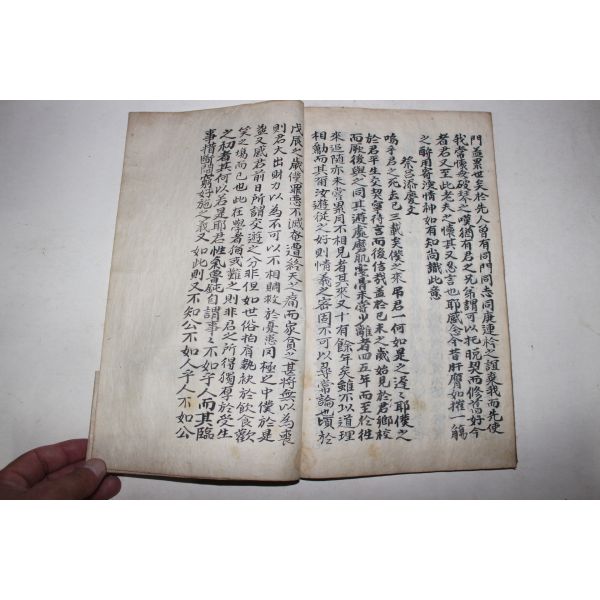 門並累世矣於先人曾有同門同志同庚連衿之誼棄我而先使
我常懷破琴之嘆猶有君之兄弟謂可以把晩契而修舊好今
者君又至此老夫之懷其又忍言也耶感念今昔肝膺如摧一觴
之酹用寄洩情神如有知尚識此意
祭呂添慶文
嗚乎君之死去已三載矣僕之來吊君一何如是之遲之耶僕之
於君平生交契寧待言而後信哉盖於已未之歲始見於君鄕校
而厥後與之同其遊處靡肌宻昔未嘗少離者四五年而至於徃
來追隨亦未嘗累月不相見者其來又十有餘年矣雖不以道理
相勖而其爾汝遊從之好則情義之密固不可以尋常論也頃於
戊辰之歲僕罪惡不滅奄遭終天之痛而家貧之甚將無以為喪
則君大出財力以為不可以不相賙救於憂患同極之中僕於是
益又感君前日所謂交遊之分非但如世俗拍肩執袂於飲食歡
笑之場而已也此在學者猶或難之則非君之所得獨厚於受生
之初者其何以若是耶君性氣 自謂事之不如乎人而其臨
事措 好施之義又如此則又不知公不如人乎人不如公